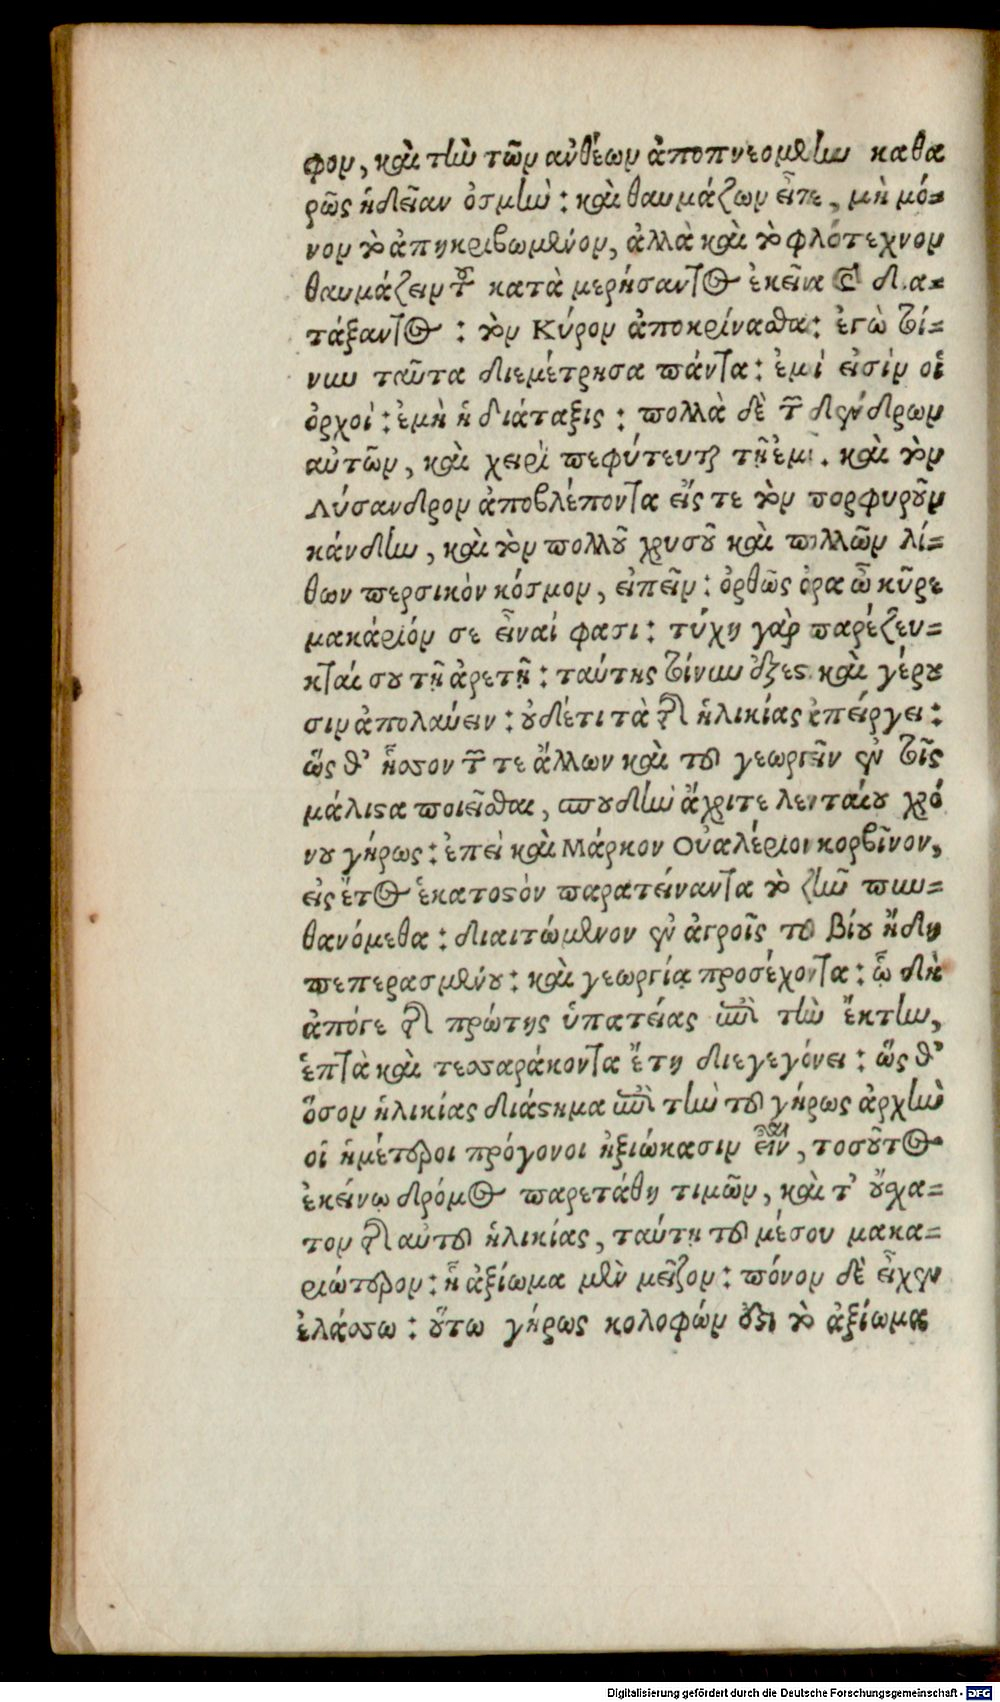 φον, καὶ τὴν τῶν ἀνθέων ἀποπνεομένην καθα
ρῶς ἡδεῖαν ὀσμὴν: καὶ θαυμάζων εἶπε, μὴ μό=
νον τὸ ἀπηκριβωμένον, ἀλλὰ καὶ τὸ φιλότεχνον
θαυμάζειν τοῦ καταμερήσαντος ἐκεῖνα καὶ δια=
τάξαντος: τὸν Κύρον ἀποκρίνασθαι: ἐγὼ τοί=
νυν ταῦτα διεμέτρησα πάντα: ἐμοί εἰσὶν οἱ
ὀρχοί: ἐμὴ ἡ διάταξις: πολλὰ δὲ τῶν δένδρων
αὐτῶν, καὶ χειρὶ πεφύτευται τῇ ἐμῇ. καὶ τὸν
Λύσανδρον ἀποβλέποντα εἴς τε τὸν πορφυροῦν
κάνδην, καὶ τὸν πολλοῦ χρυσοῦ καὶ πολλῶν λί=
θων περσικὸν κόσμον, εἰπεῖν: ὀρθῶς ὁρα ὦ κῦρε
μακάριόν σε εἶναί φασι: τύχη γὰρ παρέζευ=
κταί σου τῇ ἀρετῇ: ταύτης τοίνυν ἔξεστι καὶ γέρου
σιν ἀπολαύειν: οὐδέτι τὰ τῆς ἡλικίας ἐπείργει:
ὥς θ' ἧσσον τῶν τε ἄλλων καὶ τοῦ γεωργεῖν ἐν τοῖς
μάλιστα ποιεῖσθαι, σπουδὴν ἄχριτε λευταίου χρό
νου γήρως: ἐπεὶ καὶ Μάρκον Οὐαλέριον κορβῖνον,
εἰς ἔτος ἑκατοστὸν παρατείναντα τὸ ζῆν πυν=
θανόμεθα: διαιτώμενον ἐν ἀγροῖς τοῦ βίου ἤδη
πεπερασμένου: καὶ γεωργίᾳ προσέχοντα: ᾧ δὴ
ἀπόγε τῆς πρώτης ὑπατείας ἐπὶ τὴν ἕκτην,
ἑπτὰ καὶ τεσσαράκοντα ἔτη διεγεγόνει: ὥς θ'
ὅσον ἡλικίας διάστημα ἐπὶ τὴν τοῦ γήρως ἀρχὴν
οἱ ἡμέτεροι πρόγονοι ἠξιώκασιν εἶναι, τοσοῦτος
ἐκείνῳ δρόμος παρετάθη τιμῶν, καὶ τ' οὔσχα=
τον τῆς αὐτοῦ ἡλικίας, ταύτῃ τοῦ μέσου μακα=
ριώτερον: ᾗ ἀξίωμα μὲν μεῖζον: πόνον δὲ εἶχεν
ἐλάσσω: οὕτω γήρως κολοφών ἐστι τὸ ἀξίωμα
Digitalisierung gefördert durch die Deutsche Forschungsgemeinschaft - DFG